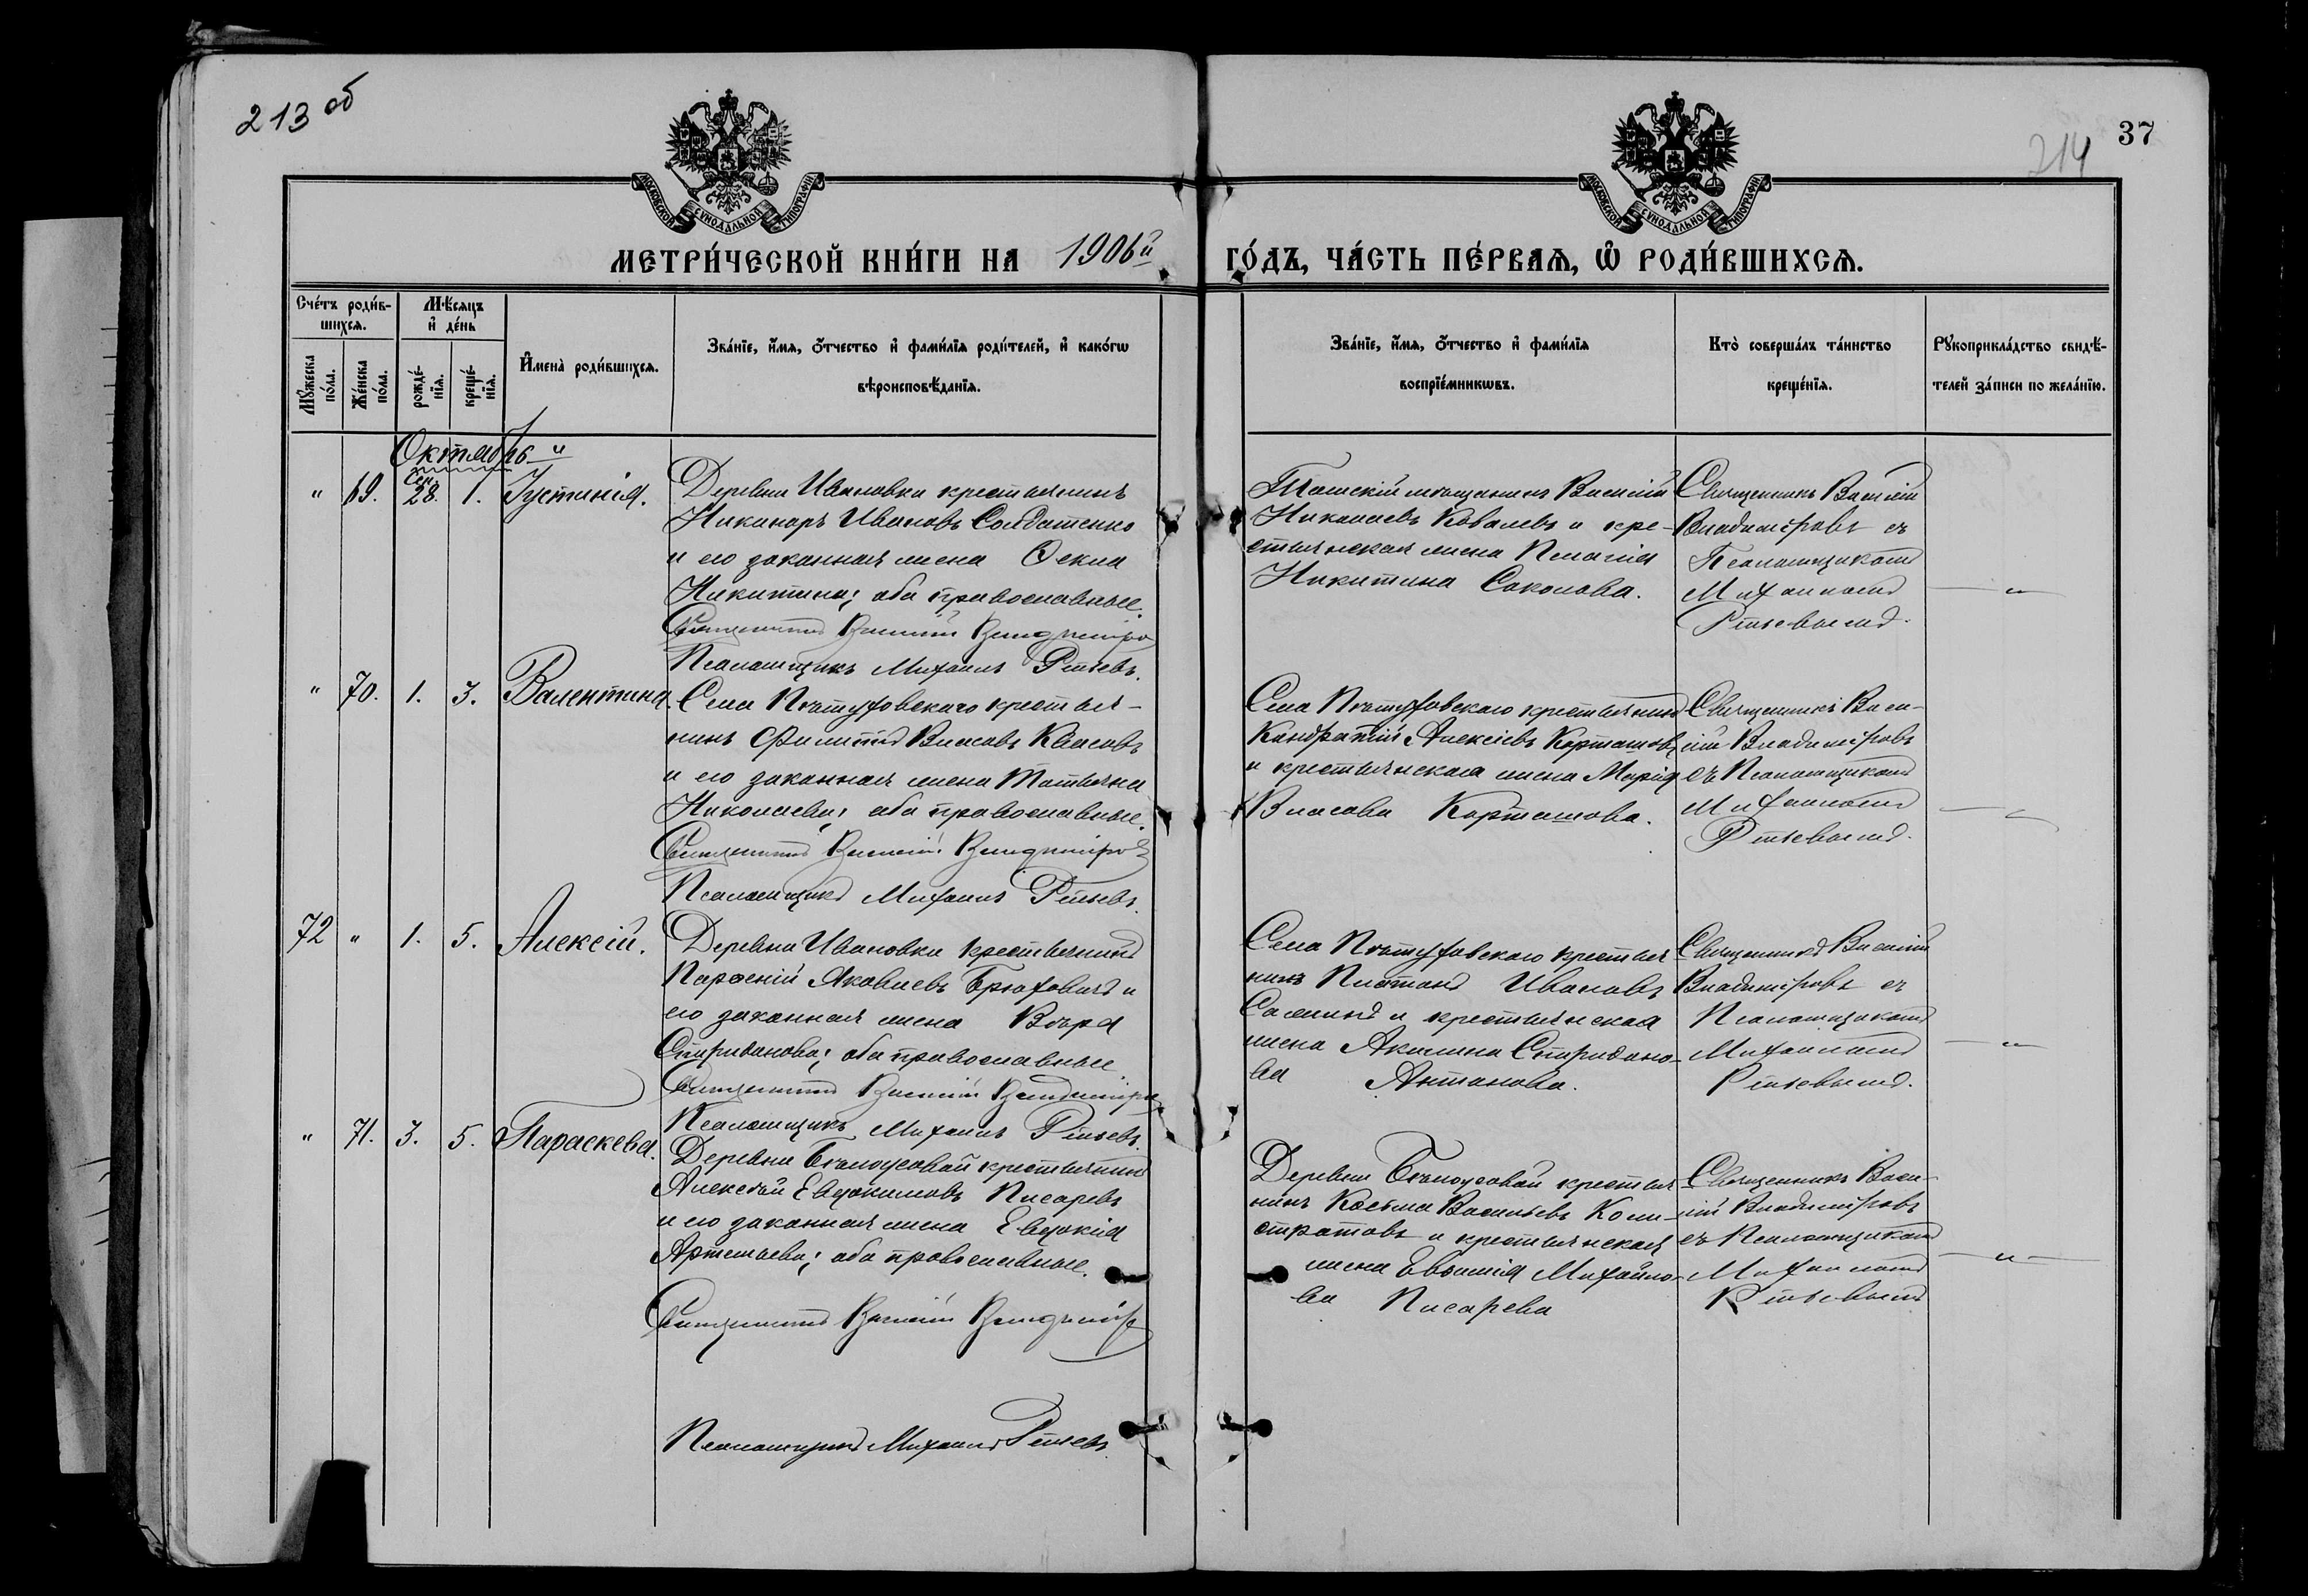 213 об
37
214
МОСКОВСКОЙ СУНОДАЛЬНОЙ ТИПОГРАФІИ
МОСКОВСКОЙ СУНОДАЛЬНОЙ ТИПОГРАФІИ
МЕТРИ́ЧЕСКОЙ КНИ́ГИ НА 1906й
ГО́ДЪ, ЧА́СТЬ ПЕ́РВАѦ, Ѡ РОДИ́ВШИХСѦ.
Сче́тъ роди́в-
шихсѧ.
Мѣ́сѧцъ
и де́нь
Мꙋ́жеска по́ла.
Же́нска по́ла.
рожде́-
нїѧ.
креще́-
нїѧ.
И́мена̀ роди́вшихсѧ.
Зва́нїе, и́мѧ, о́тчество и фами́лїѧ роди́телей, и како́гѡ
вѣроисповѣ́данїѧ.
Зва́нїе, и́мѧ, о́тчество и фами́лїѧ
воспрїе́мникѡвъ.
Кто̀ соверша́лъ та́инство
креще́нїѧ.
Рꙋкоприкла́дство свидѣ́-
телей за́писи по жела́нїю.
Октябрь
" 69. Сен. 28. 1. Іустинія.
Деревни Ивановки крестьянинъ
Никаноръ Ивановъ Солдатенко
и его законная жена Ѳекла
Никитина; оба православные.
Священникъ Василій Владиміро
Псаломщикъ Михаилъ
Василій
Николаевъ Ковалевъ и кре-
стьянская жена Пелагія
Никитина Соколова.
Священникъ Василій
Владиміровъ съ
Псаломщикомъ
Михаиломъ
" 70. 1. 3. Валентина.
Села крестья-
нинъ Филиппъ Власовъ
и его законная жена Татьяна
Николаева; оба православные.
Священникъ Василій Владиміров
Псаломщикъ Михаилъ
Села крестьянинъ
Кондратій Алексіевъ Карташовъ
и крестьянская жена Марія
Власова Карташова.
Священникъ Васи-
лій Владиміровъ
съ Псаломщикомъ
Михаиломъ
72 " 1. 5. Алексій.
Деревни Ивановки крестьянинъ
Яковлевъ и
его законная жена Вѣра
Спиридонова; оба православные.
Священникъ Василій Владиміро
Псаломщикъ Михаилъ
Села крестья
нинъ Платонъ Ивановъ
и крестьянская
жена Акилина Спиридоно-
ва Антонова.
Священникъ Василій
Владиміровъ съ
Псаломщикомъ
Михаиломъ
" 71. 3. 5. Параскева.
Деревни Бѣлоусовой крестьянинъ
Алексѣй Евдокимовъ Писаревъ
и его законная жена Евдокія
Артемьева; оба православные.
Священникъ Василій Владимір
Псаломщикъ Михаилъ
Деревни Бѣлоусовой крестья
нинъ Косьма Васильевъ Кали-
стратовъ и крестьянская
жена Михайло-
ва Писарева
Священникъ Васи-
лій Владиміровъ
съ Псаломщикомъ
Михаиломъ